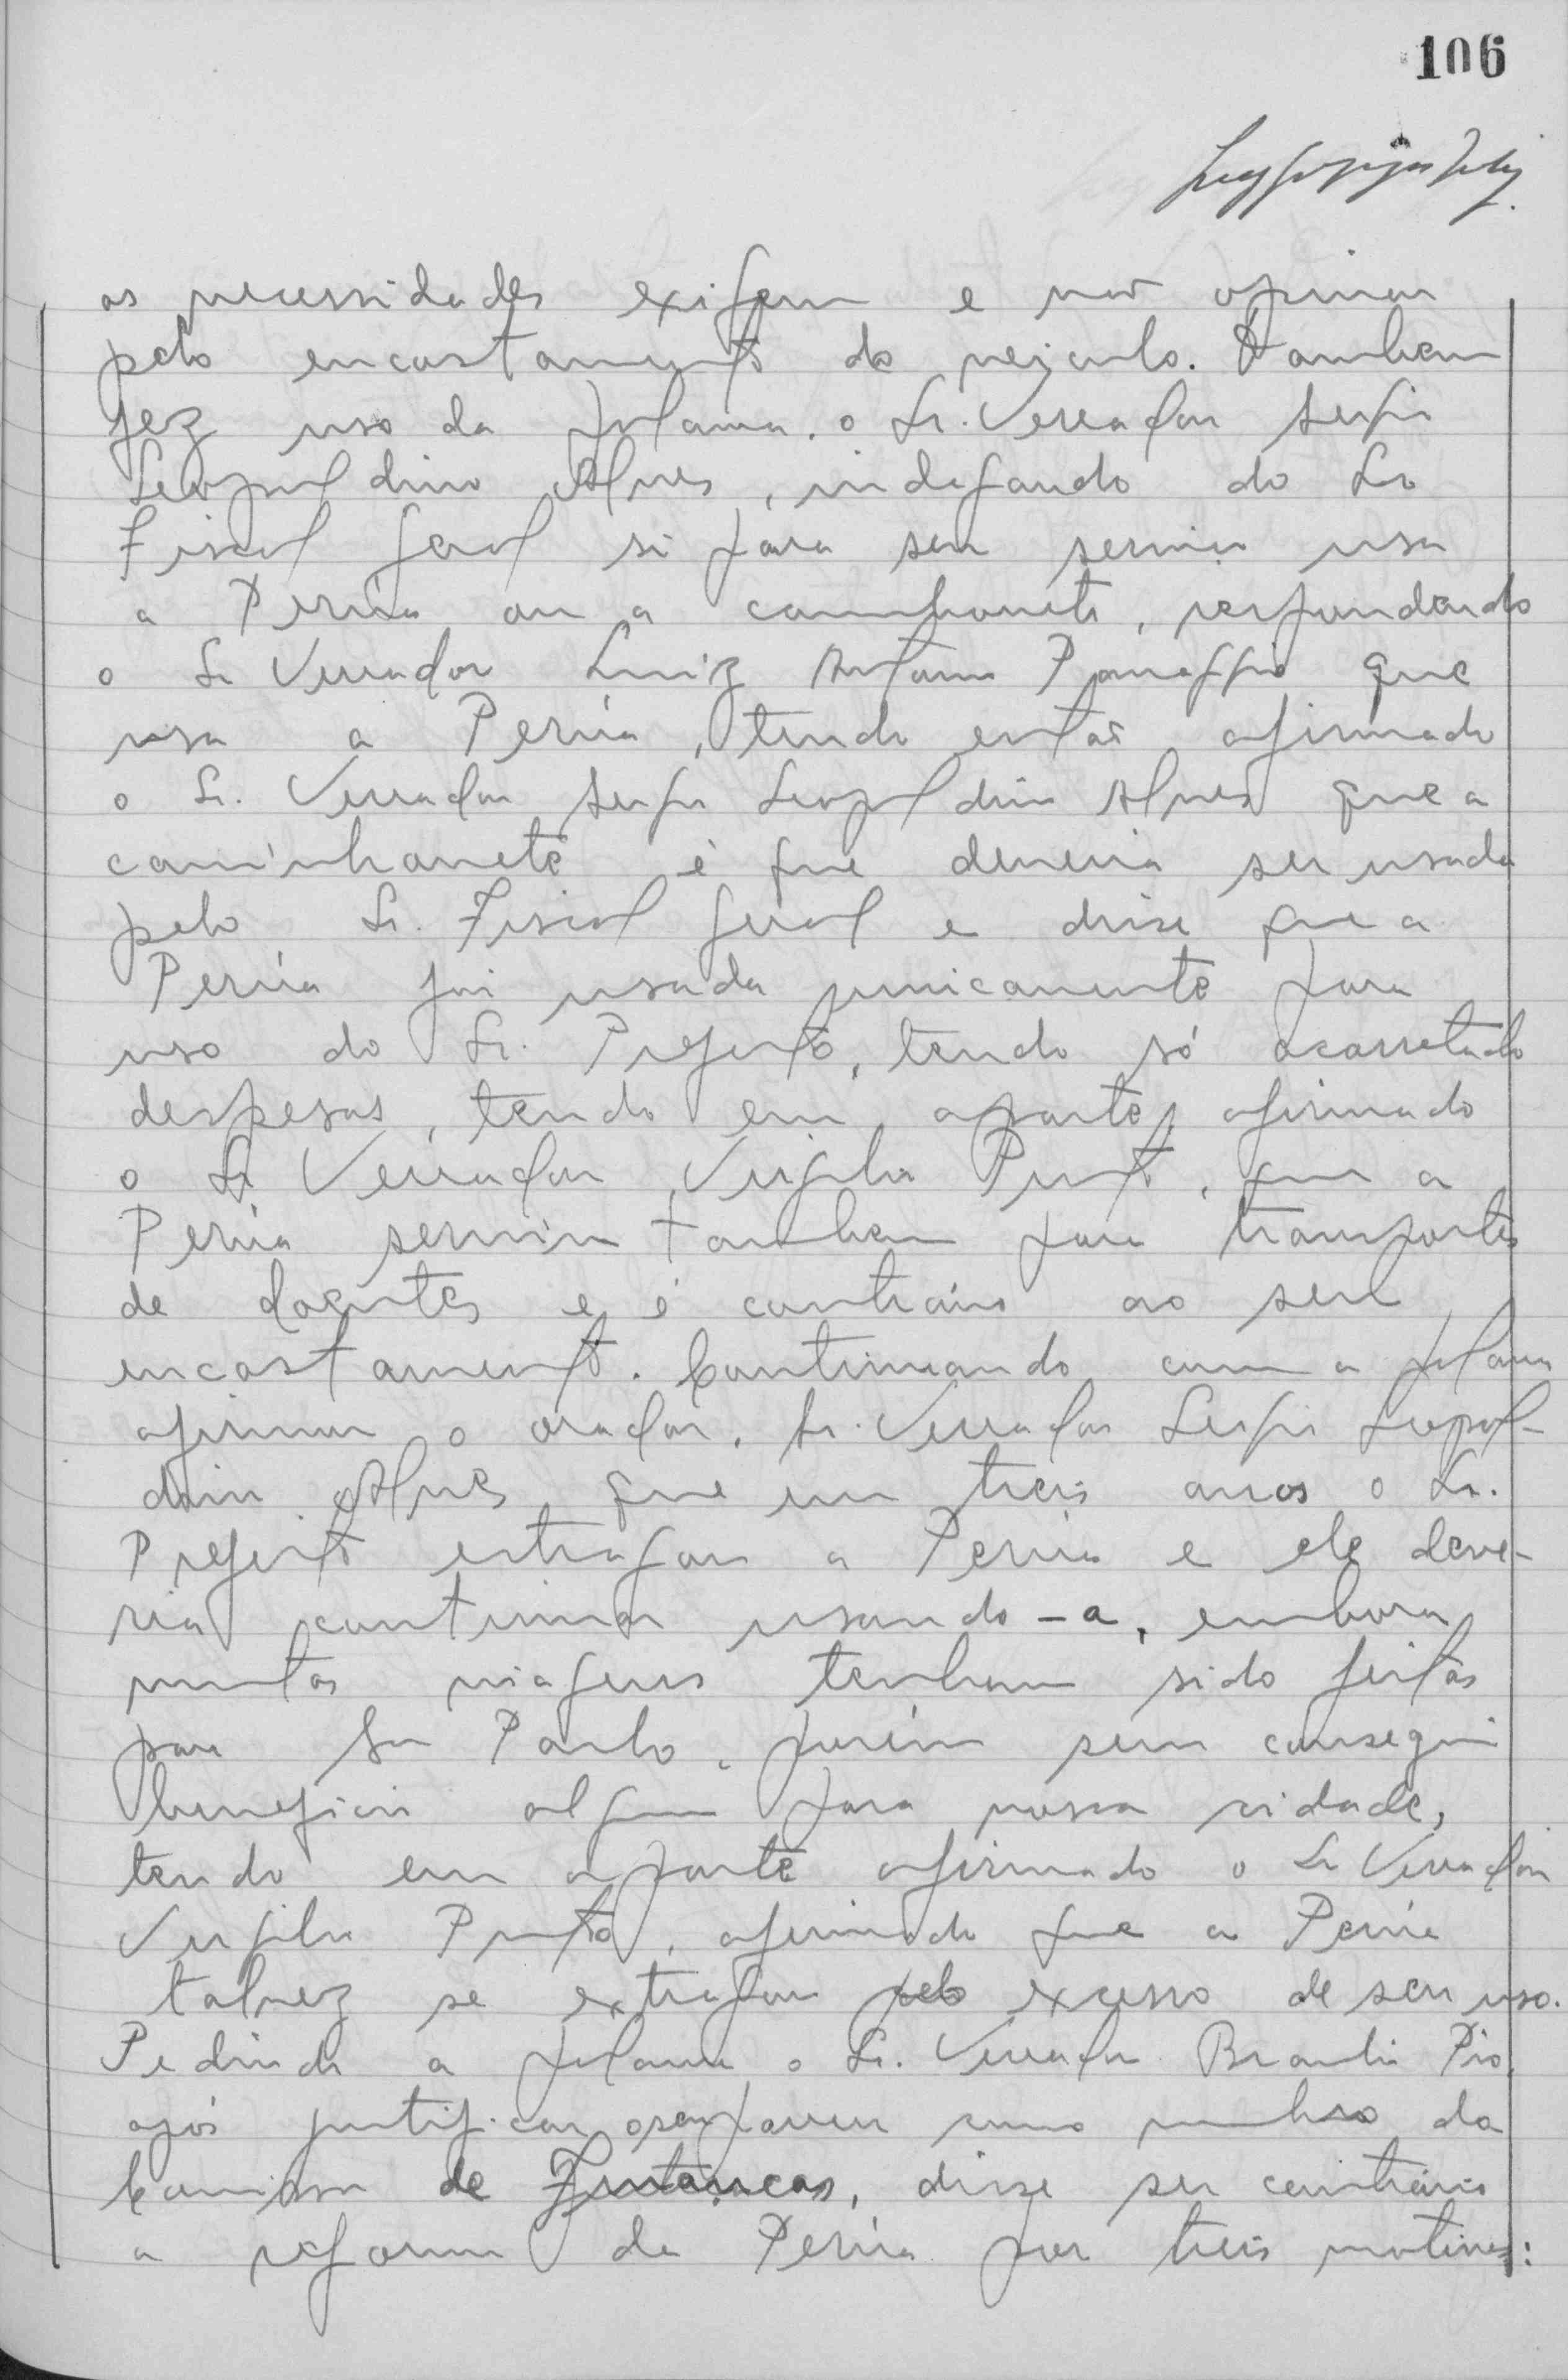 106
as necessidades exigem e não opinou
pelo encostamento do veiculo. Tambem
fez uso da palavra o Sr. Vereador Sergio
Leopoldino Alves, indagando do Sr
Fiscal Geral si para seu serviço usa
a Perúa ou a caminhonete, respondendo
o Sr Vereador Luiz Antonio que
usa a Perúa, tendo então afirmado
o Sr. Vereador Sergio Leopoldino Alves que a
caminhonete é que deveria ser usada
pelo Sr. Fiscal Geral e disse que a
Perúa foi usada unicamente para
uso do Sr. Prefeito, tendo só acarretado
despesas, tendo em aparte, afirmado
o Sr Vereador Virgilio, que a
Perúa serviu tambem para transportes
de doentes e é contrário ao seu
encostamento. Continuando com a palavra
afirmou o orador, Sr. Vereador Sergio Leopol-
dino Alves que em treis anos o Sr.
Prefeito estragou a Perúa e ele deve-
ria continuar usando-a, embora
muitas viagens tenham sido feitas
para São Paulo, porém sem conseguir
beneficio algum para nossa cidade,
tendo em aparte afirmado o Sr Vereador
Virgilio, afirmado que a Perúa
talvez se extragou pelo excesso de seu uso.
Pedindo a palavra o Sr. Vereador Braulio Pio,
após justificar o seu parecer como membro da
Comissão de Finanças, disse ser contrário
a reforma da Perúa por treis motivos: